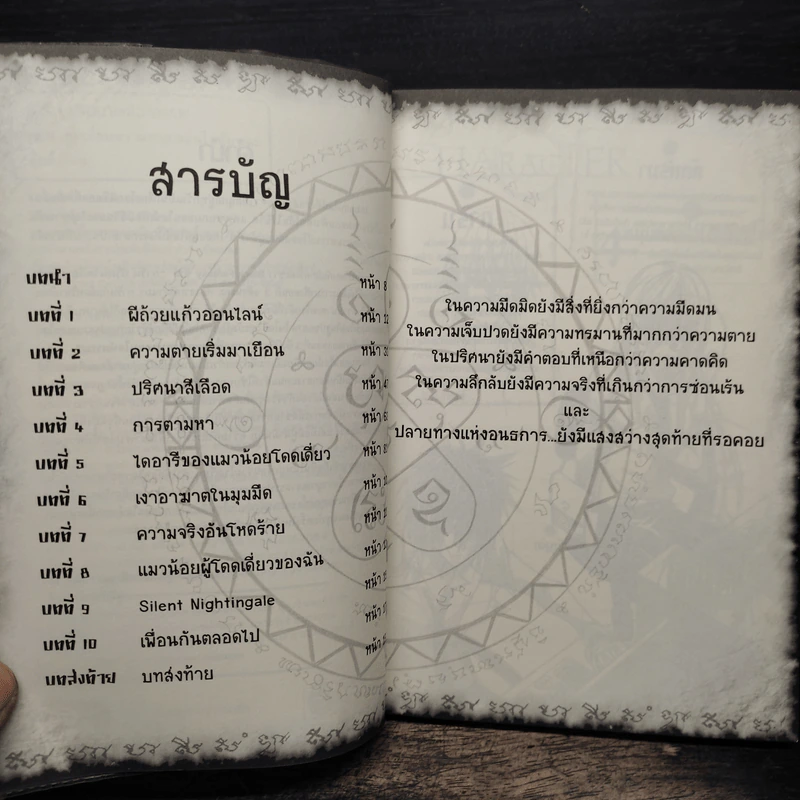 สารบัญ
บทนำ หน้า 8
บทที่ 1 ผีถ้วยแก้วออนไลน์ หน้า
บทที่ 2 ความตายเริ่มมาเยือน หน้า
บทที่ 3 ปริศนาสีเลือด หน้า
บทที่ 4 การตามหา หน้า
บทที่ 5 ไดอารีของแมวน้อยโดดเดี่ยว หน้า
บทที่ 6 เงาอาฆาตในมุมมืด หน้า
บทที่ 7 ความจริงอันโหดร้าย หน้า
บทที่ 8 แมวน้อยผู้โดดเดี่ยวของฉัน หน้า
บทที่ 9 Silent Nightingale หน้า
บทที่ 10 เพื่อนกันตลอดไป หน้า
บทส่งท้าย บทส่งท้าย
ในความมืดมิดยังมีสิ่งที่ยิ่งกว่าความมืดมน
ในความเจ็บปวดยังมีความทรมานที่มากกว่าความตาย
ในปริศนายังมีคำตอบที่เหนือกว่าความคาดคิด
ในความลึกลับยังมีความจริงที่เกินกว่าการซ่อนเร้น
และ
ปลายทางแห่งอนธการ...ยังมีแสงสว่างสุดท้ายที่รอคอย